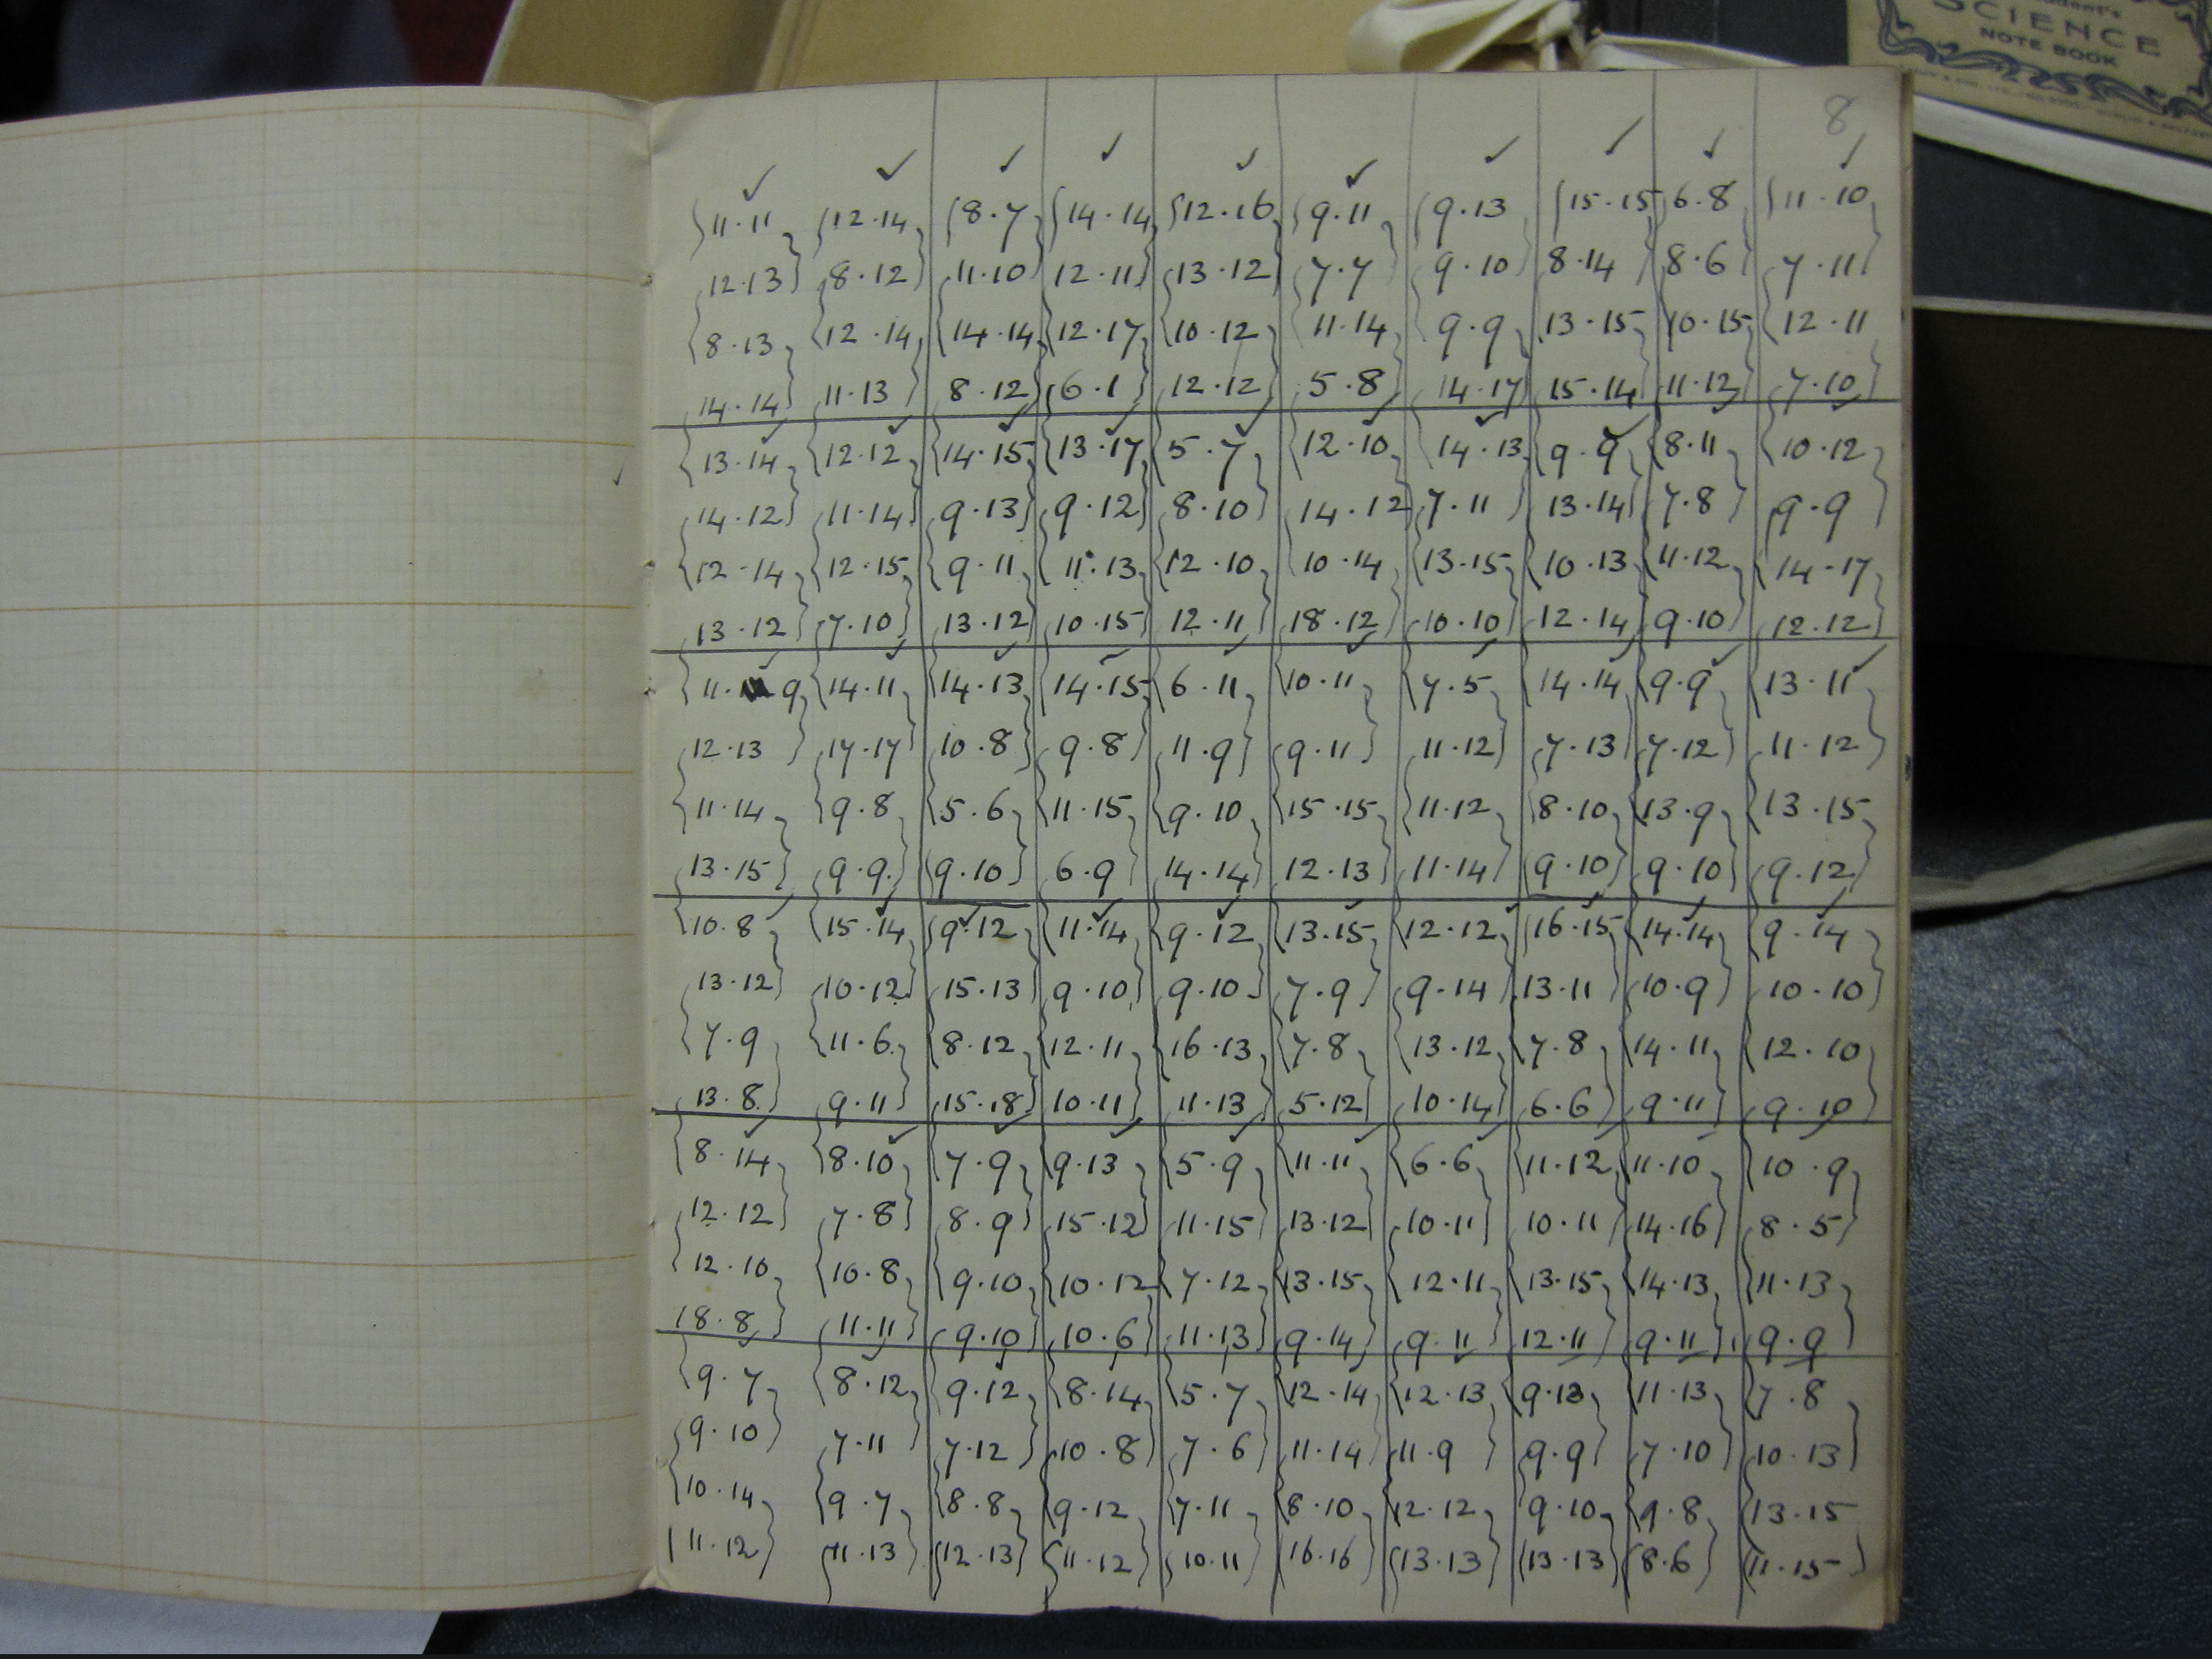 Student's
SCIENCE
NOTE BOOK
8
11.11 12.14 8.7 14.14 12.16 9.11 9.13 15.15 6.8 11.10
12.13 8.12 11.10 12.11 13.12 7.7 9.10 8.14 8.6 7.11
8.13 12.14 14.14 12.17 10.12 11.14 9.9 13.15 10.15 12.11
14.14 11.13 8.12 6.1 12.12 5.8 14.17 15.14 11.12 7.10
13.14 12.12 14.15 13.17 5.7 12.10 14.13 9.9 8.11 10.12
14.12 11.14 9.13 9.12 8.10 14.12 7.11 13.14 7.8 9.9
12.14 12.15 9.11 11.13 12.10 10.14 13.15 10.13 11.12 14.17
13.12 7.10 13.12 10.15 12.11 18.12 10.10 12.14 9.10 12.12
11.9 14.11 14.13 14.15 6.11 10.11 7.5 14.14 9.9 13.11
12.13 17.17 10.8 9.8 11.9 9.11 11.12 7.13 7.12 11.12
11.14 9.8 5.6 11.15 9.10 15.15 11.12 8.10 13.9 13.15
13.15 9.9 9.10 6.9 14.14 12.13 11.14 9.10 9.10 9.12
10.8 15.14 9.12 11.14 9.12 13.15 12.12 16.15 14.14 9.14
13.12 10.12 15.13 9.10 9.10 7.9 9.14 13.11 10.9 10.10
7.9 11.6 8.12 12.11 16.13 7.8 13.12 7.8 14.11 12.10
13.8 9.11 15.18 10.11 11.13 5.12 10.14 6.6 9.11 9.10
8.14 8.10 7.9 9.13 5.9 11.11 6.6 11.12 11.10 10.9
12.12 7.8 8.9 15.12 11.15 13.12 10.11 10.11 14.16 8.5
12.10 10.8 9.10 10.12 7.12 13.15 12.11 13.15 14.13 11.13
18.8 11.11 9.10 10.6 11.13 9.14 9.11 12.11 9.11 9.9
9.7 8.12 9.12 8.14 5.7 12.14 12.13 9.13 11.13 7.8
9.10 7.11 7.12 10.8 7.6 11.14 11.9 9.9 7.10 10.13
10.14 9.7 8.8 9.12 7.11 8.10 12.12 9.10 9.8 13.15
11.12 11.13 12.13 11.12 10.11 16.16 13.13 13.13 8.6 11.15